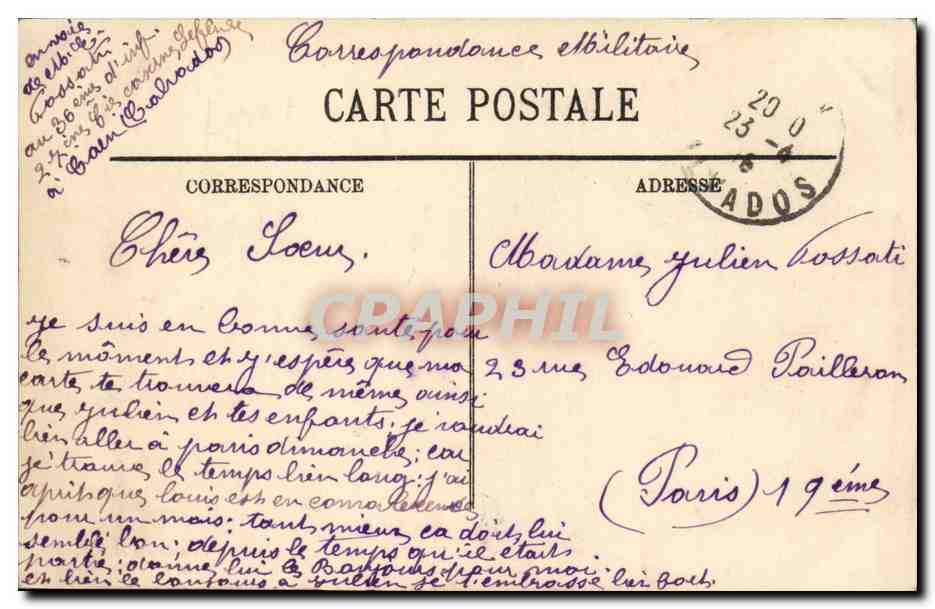 envoie
de Mlle
Fossati
au 36ème d'inf.
27ème Cie caserne Lefebvre
à Caen (Calvados)
Correspondance Militaire
CARTE POSTALE
20 0
23 -4
16
ADOS
CORRESPONDANCE
ADRESSE
Chère Soeur.
Madame Julien Fossati
23 rue Edouard Pailleron
(Paris) 19ème
je suis en bonne sante pour
le môment et j'espère que ma
carte te trouvera de même ainsi
que julien et tes enfants. je voudrai
bien aller à paris dimanche; car
je trouve le temps bien long; j'ai
apris que louis est en convalescence
pour un mois; tant mieux ca doit lui
semblé bon; depuis le temps qu'il etait
partie; donne lui le Bonjours pour moi.
et bien le bonjours à julien je t'embrasse bien fort
CPAPHIL